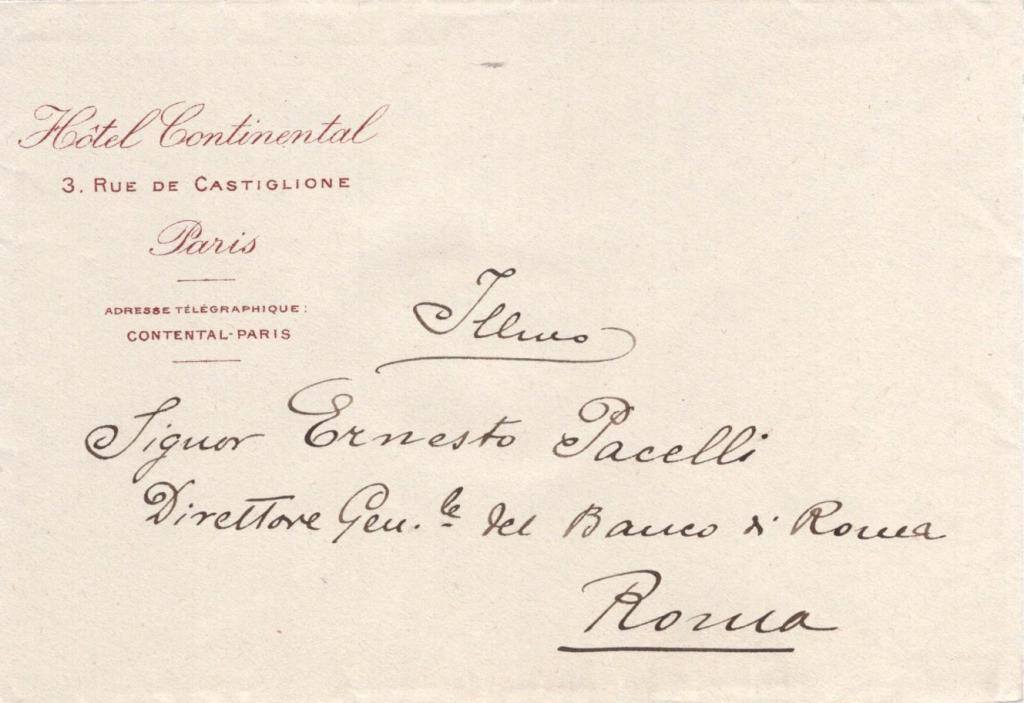 Hôtel Continental
3. RUE DE CASTIGLIONE
Paris
ADRESSE TÉLÉGRAPHIQUE:
CONTENTAL-PARIS
Illmo
Signor Ernesto Pacelli
Direttore Gen.le del Banco di Roma
Roma